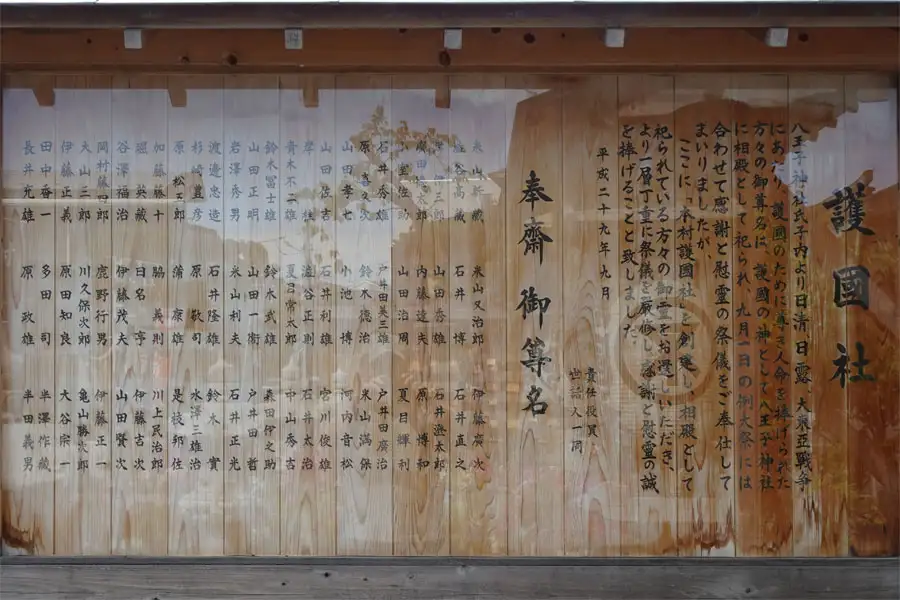 護國社
八王子神社氏子内より日清 日露 大東亜戦争
にあたり 護國のために尊き人命を捧げられた
方々の御尊名は 護國の神として八王子神社
に相殿として祀られ、九月一日の例大祭には
合わせて感謝と慰霊の祭儀をご奉仕して
まいりましたが、
ここに、本村護國社を創建し、相殿として
祀られている方々の御霊をお遷しいただき、
より一層丁重に祭儀を厳修し感謝と慰霊の誠
を捧げることと致しました。
平成二十九年九月
責任役員
世話人一同
奉齋御尊名
米山又治郎 伊藤廣次
塩谷高蔵 石井博 石井直之
山田呑雄 石井遜太郎
内藤達夫 原博和
小室佐助 山田治周 夏目輝利
石井秀雄 戸井田英三雄 戸井田廣治
原喜久次 鈴木德治 米山満保
山田孝七 小池博 河内音松
山田佐吉 石井利雄 宮川俊雄
澁谷正則 石井太治
青木不二雄 夏目常太郎 中山秀吉
鈴木冨士雄 鈴木武雄 森田伊之助
山田正明 山田一衛 戸井田哲
岩澤秀男 米山利夫 石井正光
渡邉忠造 石井隆雄 鈴木實
杉崎豊彦 原敬司 水澤三雄治
原松五郎 蒲康雄 是枝邦佐
加藤藤十 脇義則 川上民治郎
堀英蔵 日名亨 伊藤吉次
谷澤福治 伊藤茂夫 山田賢次
岡村藤四郎 鹿野行男 伊藤正一
大山三郎 川久保次郎 亀山勝次郎
伊藤正義 原田知良 大谷宗一
田中畨一 多田司 半澤作蔵
長井光雄 原政雄 半田義男